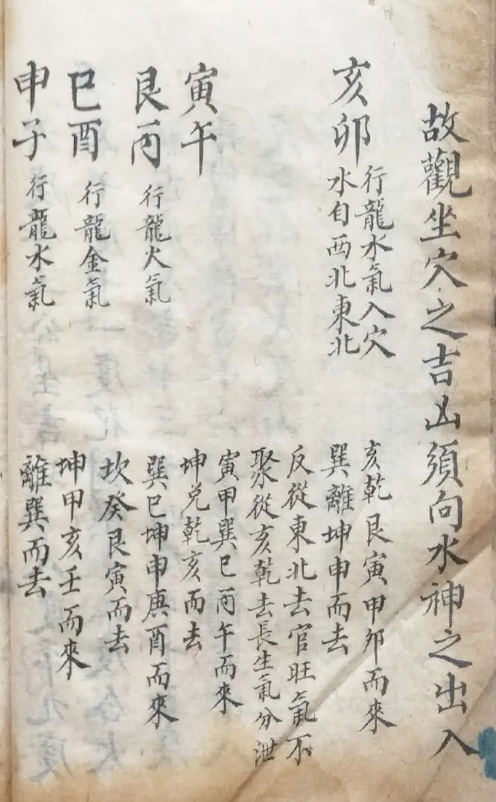 故觀坐穴之吉凶須向水神之出入
亥卯
行龍水氣入穴
水自西北東北
亥乾艮寅甲卯而來
巽離坤申而去
反從東北去官旺氣不
聚從亥乾去長生氣分泄
寅午
寅甲巽巳丙午而來
坤兌乾亥而去
艮丙
行龍火氣
巽巳坤申庚酉而來
坎癸艮寅而去
巳酉
行龍金氣
坤甲亥壬而來
離巽而去
申子
行龍水氣